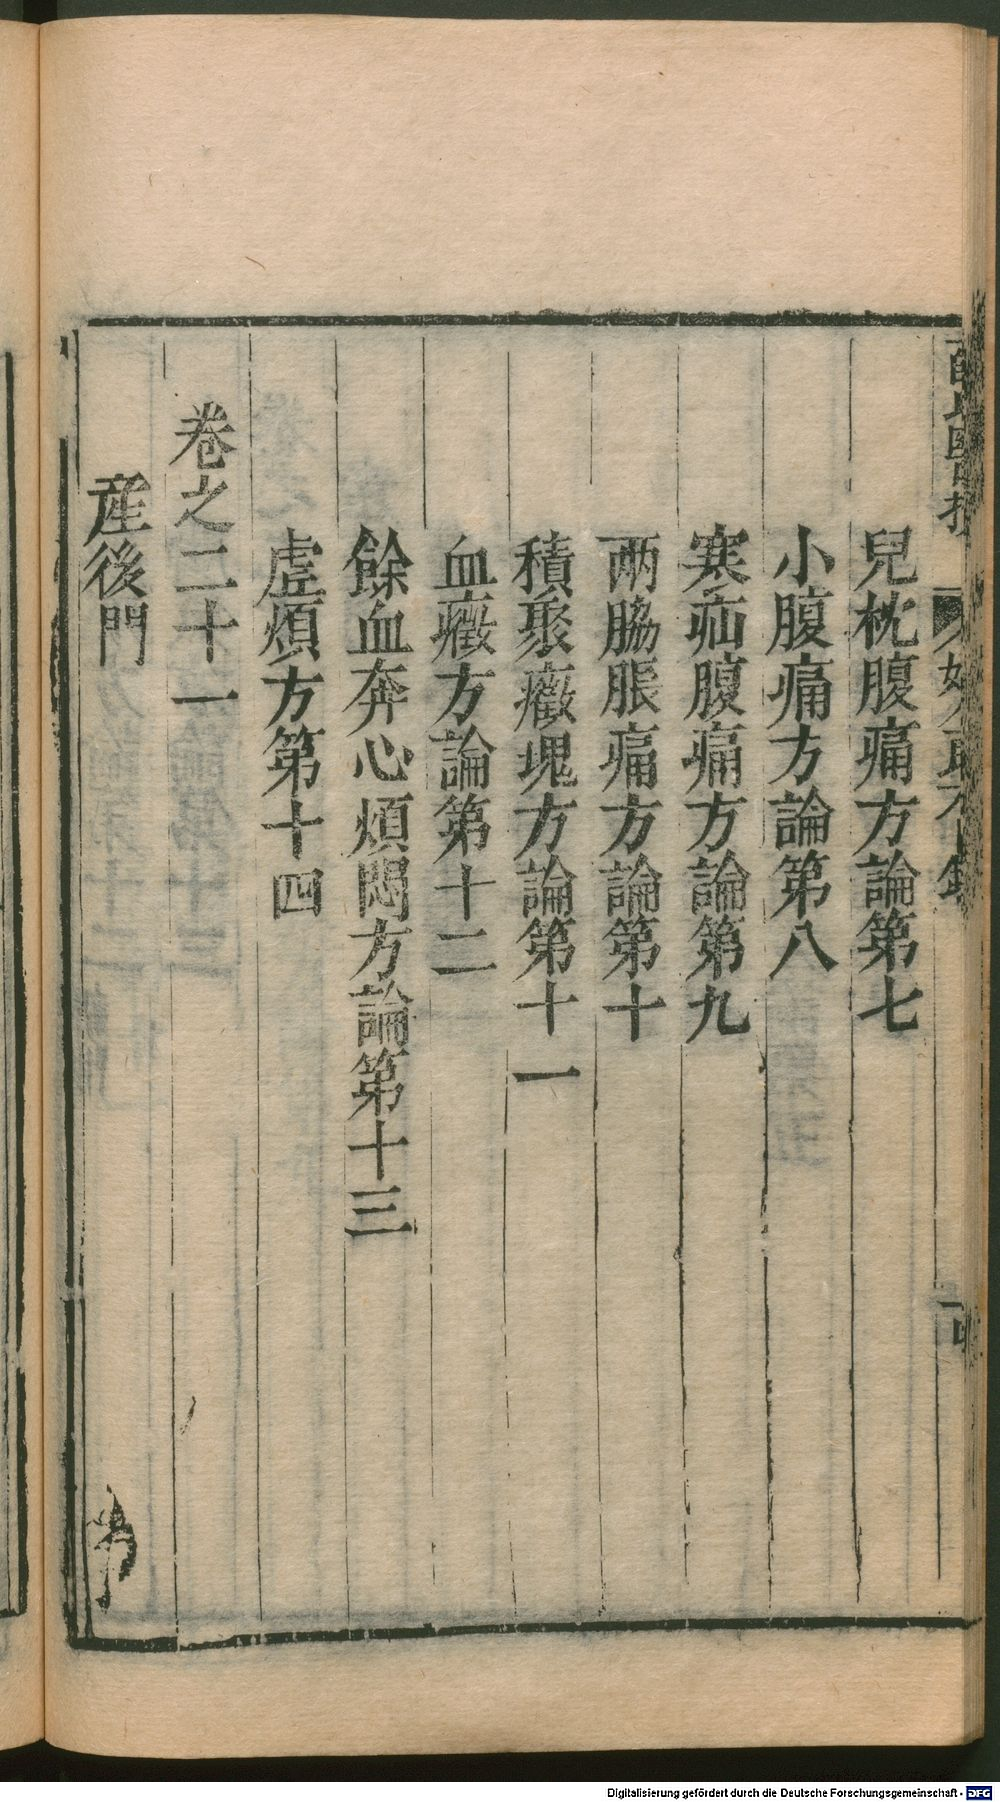 兒枕腹痛方論第七
小腹痛方論第八
寒疝腹痛方論第九
兩脇脹痛方論第十
積聚癥塊方論第十一
血癥方論第十二
餘血奔心煩悶方論第十三
虛煩方第十四
卷之二十一
産後門
Digitalisierung gefördert durch die Deutsche Forschungsgemeinschaft - DFG